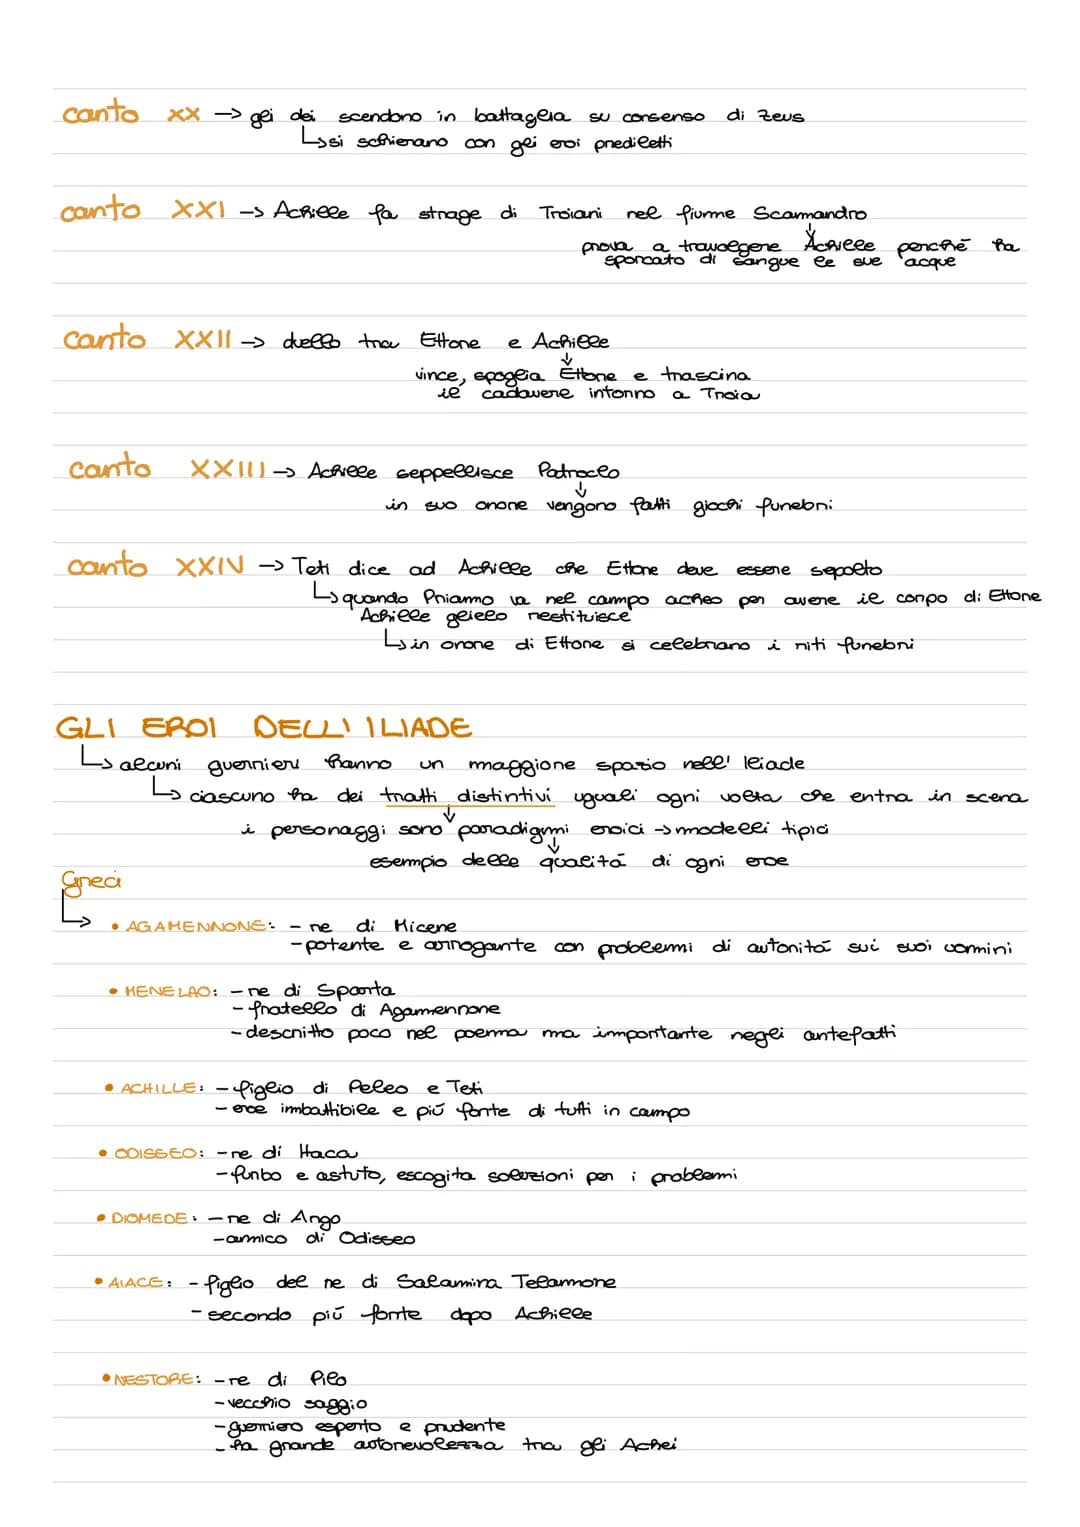 canto XX → gli dei scendono in battaglia su consenso di Zeus
↳ si schierano con gli eroi prediletti
canto XXI → Achille fa strage di Troiani nel fiume Scamandro
prova a travolgere Achille perché ha
sporcato di sangue le sue acque
canto XXII → duello tra Ettore e Achille
vince, spoglia Ettore e trascina
il cadavere intorno a Troia
canto XXIII → Achille seppellisce Patroclo
in suo onore vengono fatti giochi funebri
canto XXIV → Teti dice ad Achille che Ettore deve essere sepolto
↳ quando Priamo va nel campo acheo per avere il corpo di Ettore
Achille glielo restituisce
↳ in onore di Ettore si celebrano i riti funebri
GLI EROI DELL'ILIADE
↳ alcuni guerrieri hanno un maggiore spazio nell'Iliade
↳ ciascuno ha dei tratti distintivi uguali ogni volta che entra in scena
i personaggi sono paradigmi eroici → modelli tipici
esempio delle qualità di ogni eroe
Greci
↳ • AGAMENNONE: - re di Micene
- potente e arrogante con problemi di autorità sui suoi uomini
• MENELAO: - re di Sparta
- fratello di Agamennone
- descritto poco nel poema ma importante negli antefatti
• ACHILLE: - figlio di Peleo e Teti
- eroe imbattibile e più forte di tutti in campo
• ODISSEO: - re di Itaca
- furbo e astuto, escogita soluzioni per i problemi
• DIOMEDE: - re di Argo
- amico di Odisseo
• AIACE: - figlio del re di Salamina Telamone
- secondo più forte dopo Achille
• NESTORE: - re di Pilo
- vecchio saggio
- guerriero esperto e prudente
- ha grande autorevolezza tra gli Achei